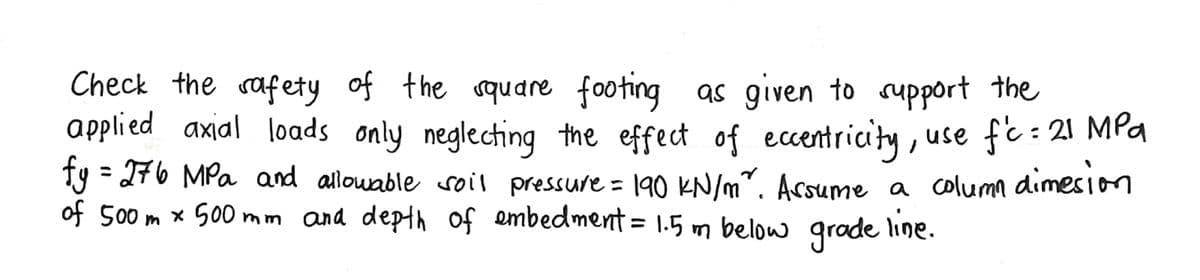 Check the safety of the square footing as given to support the
applied axial loads only neglecting the effect of eccentricity, use f'c = 21 MPa
fy = 276 MPa and allowable soil pressure = 190 KN/m². Assume a column dimesion
of 500 m x 500 mm and depth of embedment = 1.5 m below grade line.